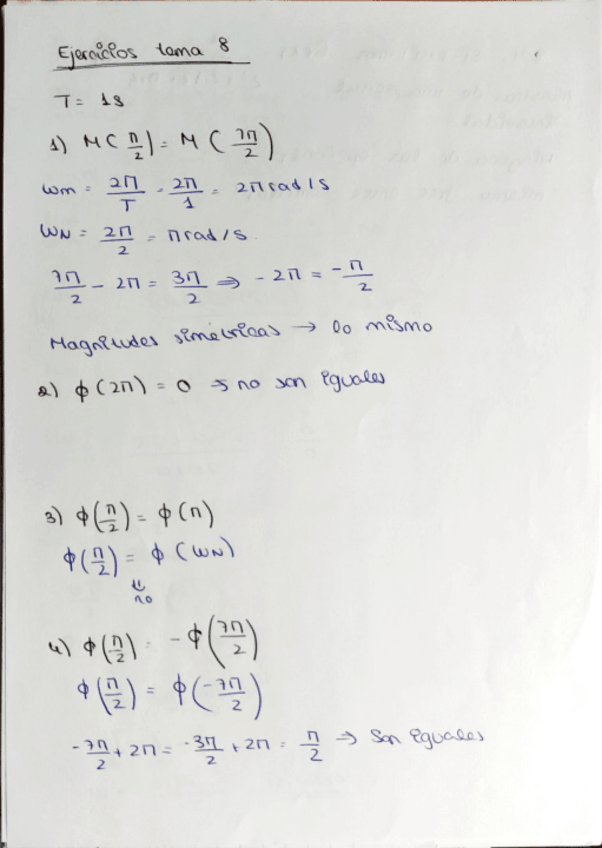 Ejercicios tema 8
T = 1s
1) M(π/2) = M(7π/2)
ωm = 2π/T = 2π/1 = 2π rad/s
ωN = 2π/2 = π rad/s.
7π/2 - 2π = 3π/2 ⇒ - 2π = -π/2
Magnitudes simétricas → lo mismo
2) ϕ(2π) = 0 ⇒ no son iguales
3) ϕ(π/2) = ϕ(π)
ϕ(π/2) = ϕ(ωN)
⇓
no
4) ϕ(π/2) = -ϕ(7π/2)
ϕ(π/2) = ϕ(-7π/2)
-7π/2 + 2π = -3π/2 + 2π = π/2 ⇒ Son iguales